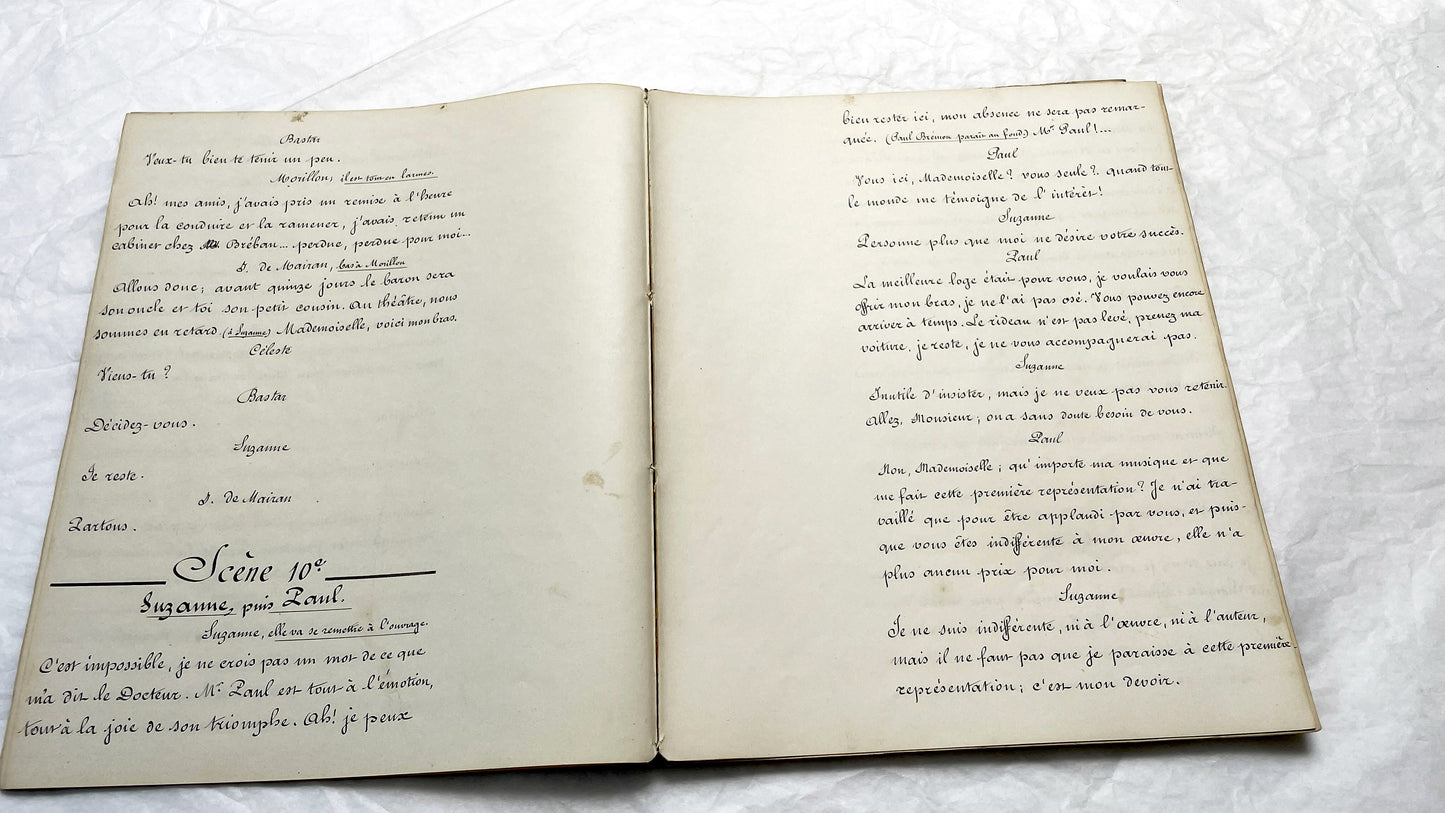 Bastar
Veux-tu bien te tenir un peu.
Morillon, il est tout en larmes.
Ah! mes amis, j'avais pris un remise à l'heure
pour la conduire et la ramener, j'avais retenu un
cabinet chez Bréban... perdue, perdue pour moi...
J. de Mairan, bas à Morillon
Allons donc; avant quinze jours le baron sera
son oncle et toi son petit cousin. Au théâtre, nous
sommes en retard (à Suzanne) Mademoiselle, voici mon bras.
Céleste
Viens-tu ?
Bastar
Décidez-vous.
Suzanne
Je reste.
J. de Mairan
Partons.
Scène 10e
Suzanne, puis Paul.
Suzanne, elle va se remettre à l'ouvrage.
C'est impossible, je ne crois pas un mot de ce que
m'a dit le Docteur. Mr Paul est tout à l'émotion,
tout à la joie de son triomphe. Ah! je peux
bien rester ici, mon absence ne sera pas remar-
quée. (Paul Brémon paraît au fond) Mr Paul!...
Paul
Vous ici, Mademoiselle? vous seule?. quand tout
le monde me témoigne de l'intérêt!
Suzanne
Personne plus que moi ne désire votre succès.
Paul
La meilleure loge était pour vous, je voulais vous
offrir mon bras, je ne l'ai pas osé. Vous pouvez encore
arriver à temps. Le rideau n'est pas levé, prenez ma
voiture, je reste, je ne vous accompagnerai pas.
Suzanne
Inutile d'insister, mais je ne veux pas vous retenir.
Allez, Monsieur; on a sans doute besoin de vous.
Paul
Non, Mademoiselle; qu'importe ma musique et que
me fait cette première représentation? Je n'ai tra-
vaillé que pour être applaudi par vous, et puis-
que vous êtes indifférente à mon œuvre, elle n'a
plus aucun prix pour moi.
Suzanne
Je ne suis indifférente, ni à l'œuvre, ni à l'auteur,
mais il ne faut pas que je paraisse à cette première
représentation; c'est mon devoir.